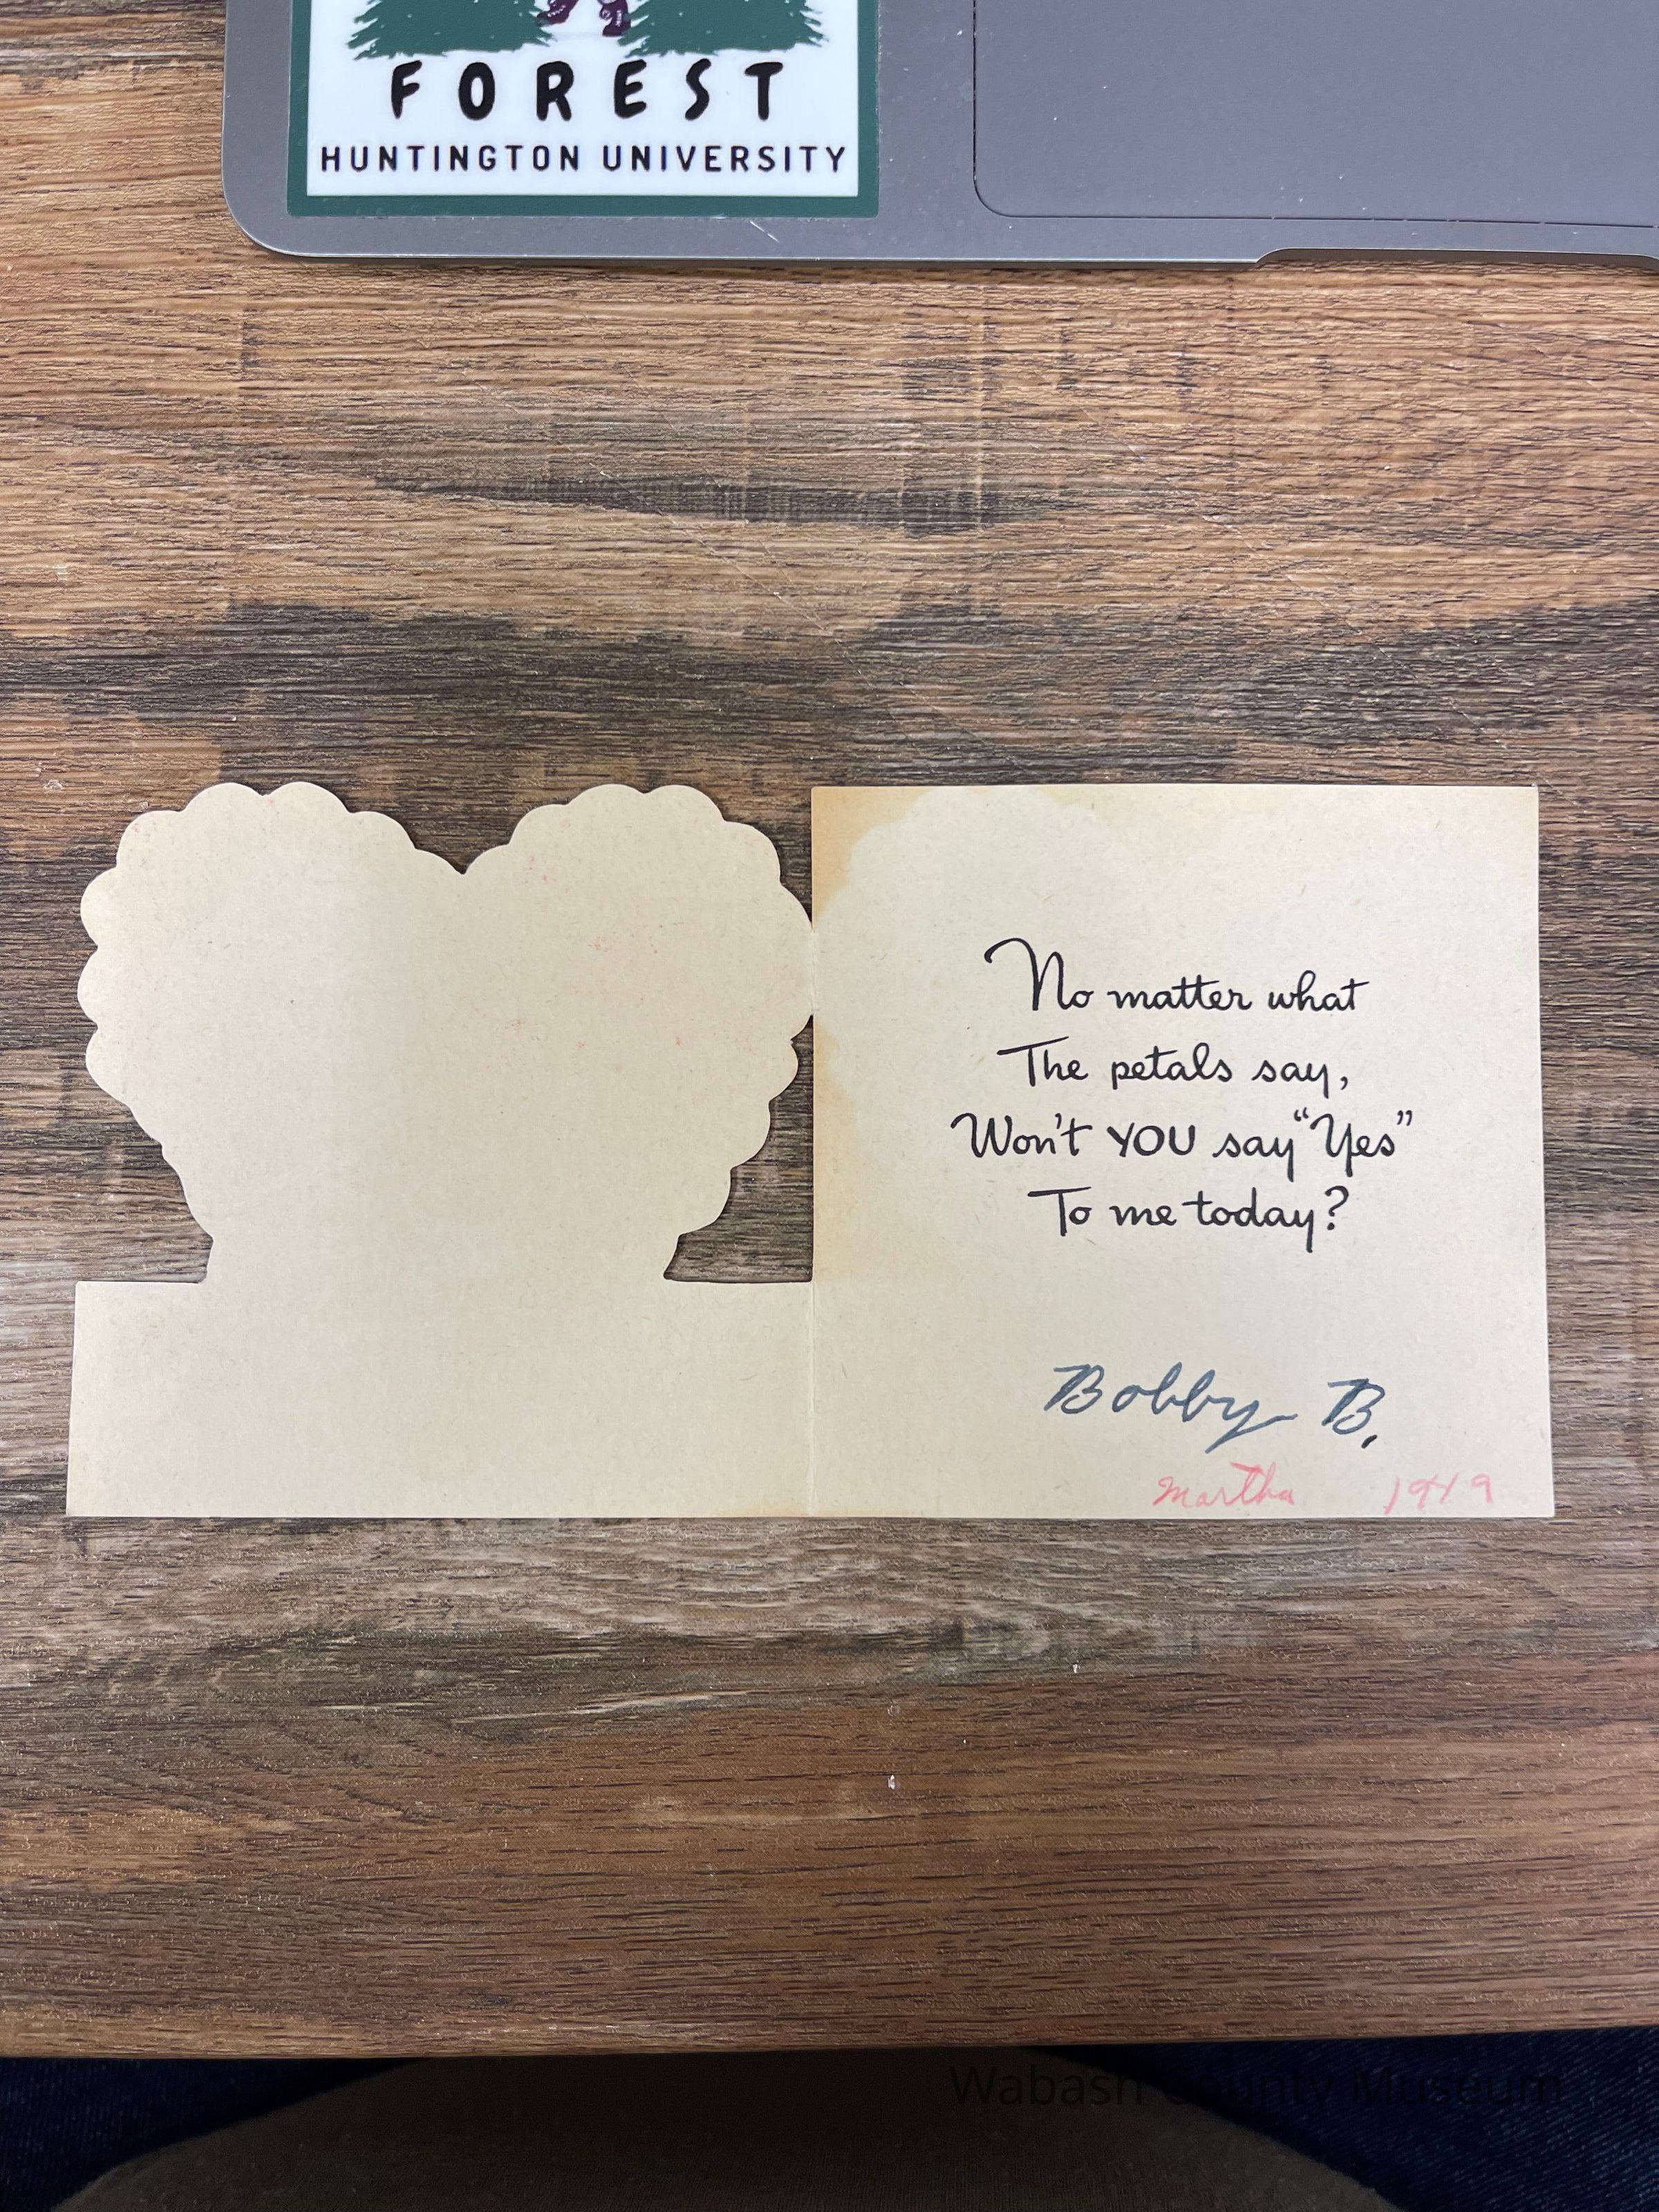 FOREST
HUNTINGTON UNIVERSITY
No matter what
The petals say,
Won't YOU say "Yes"
To me today?
Bobby B.
Martha 1949
Wabash County Museum